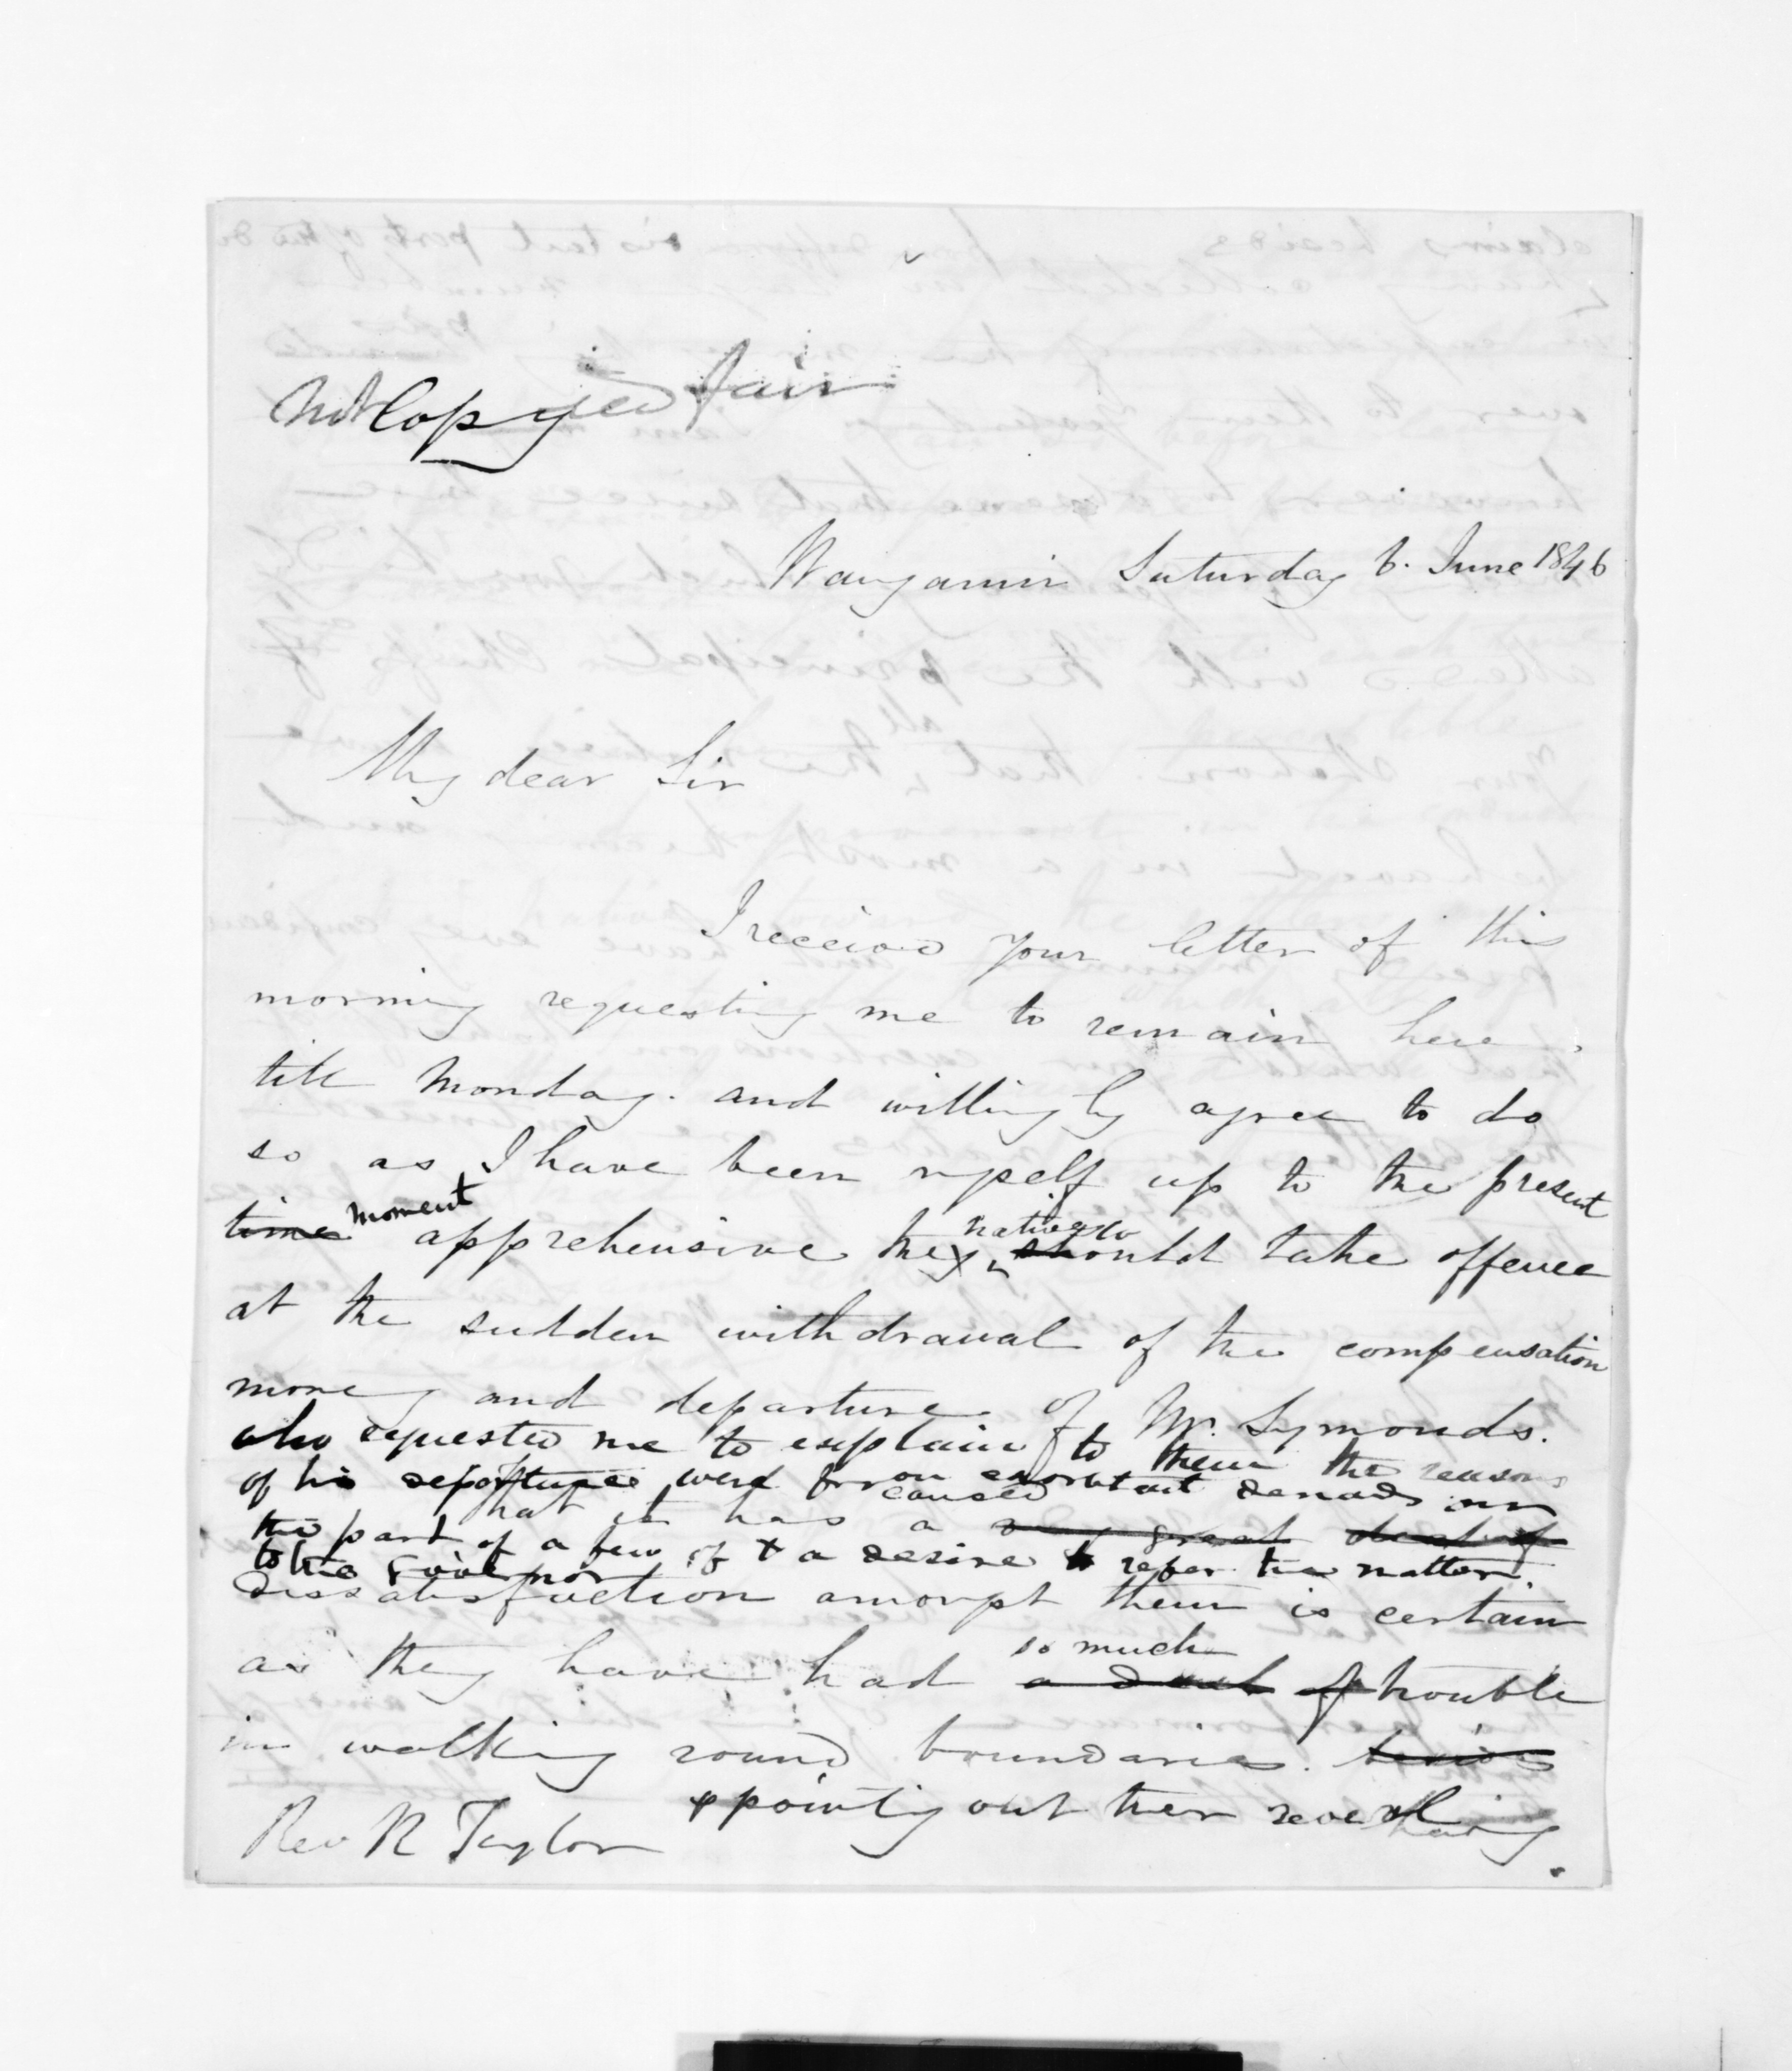 Not Copyied fair
Wanganui Saturday 6. June 1846
My dear Sir
I received your letter of this
morning requesting me to remain here
till Monday. and willingly agree to do
so as I have been myself up to the present
time moment apprehensive they natives would take offence
at the sudden withdrawal of the compensation
money and departure of Mr. Symonds.
who requested me to explain to them the reasons
of his departure were from exorbitant demands on
the part of a few of & a desire to refer the matter
to the Governor
That it has caused a great deal of
dissatisfaction amongst them is certain
as they have had so much a deal of trouble
in walking round boundaries. besides
& pointing out their several
Rev R Taylor having